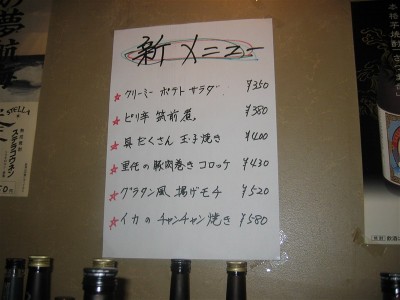 新メニュー
★クリーミーポテトサラダ ¥350
★ピリ辛 筑前煮。 ¥380
★具だくさん 玉子焼き ¥400
★里芋の豚肉巻きコロッケ ¥430
★グラタン風 揚げモチ ¥520
★イカのチャンチャン焼き ¥580
の夢
本格芋焼酎
STELLA